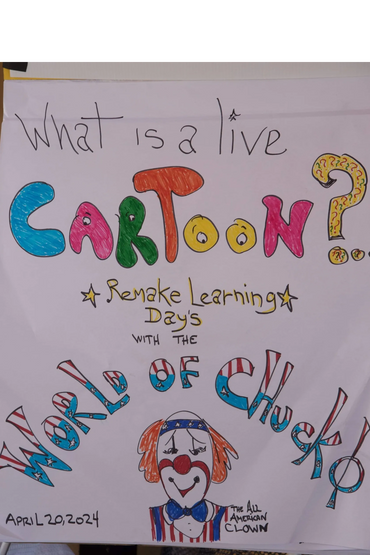 What is a live
CARTOON?...
Remake Learning
Day's
WITH THE
WORLD OF CHucko!
THE All
AMERICAN
CLOWN
APRIL 20, 2024